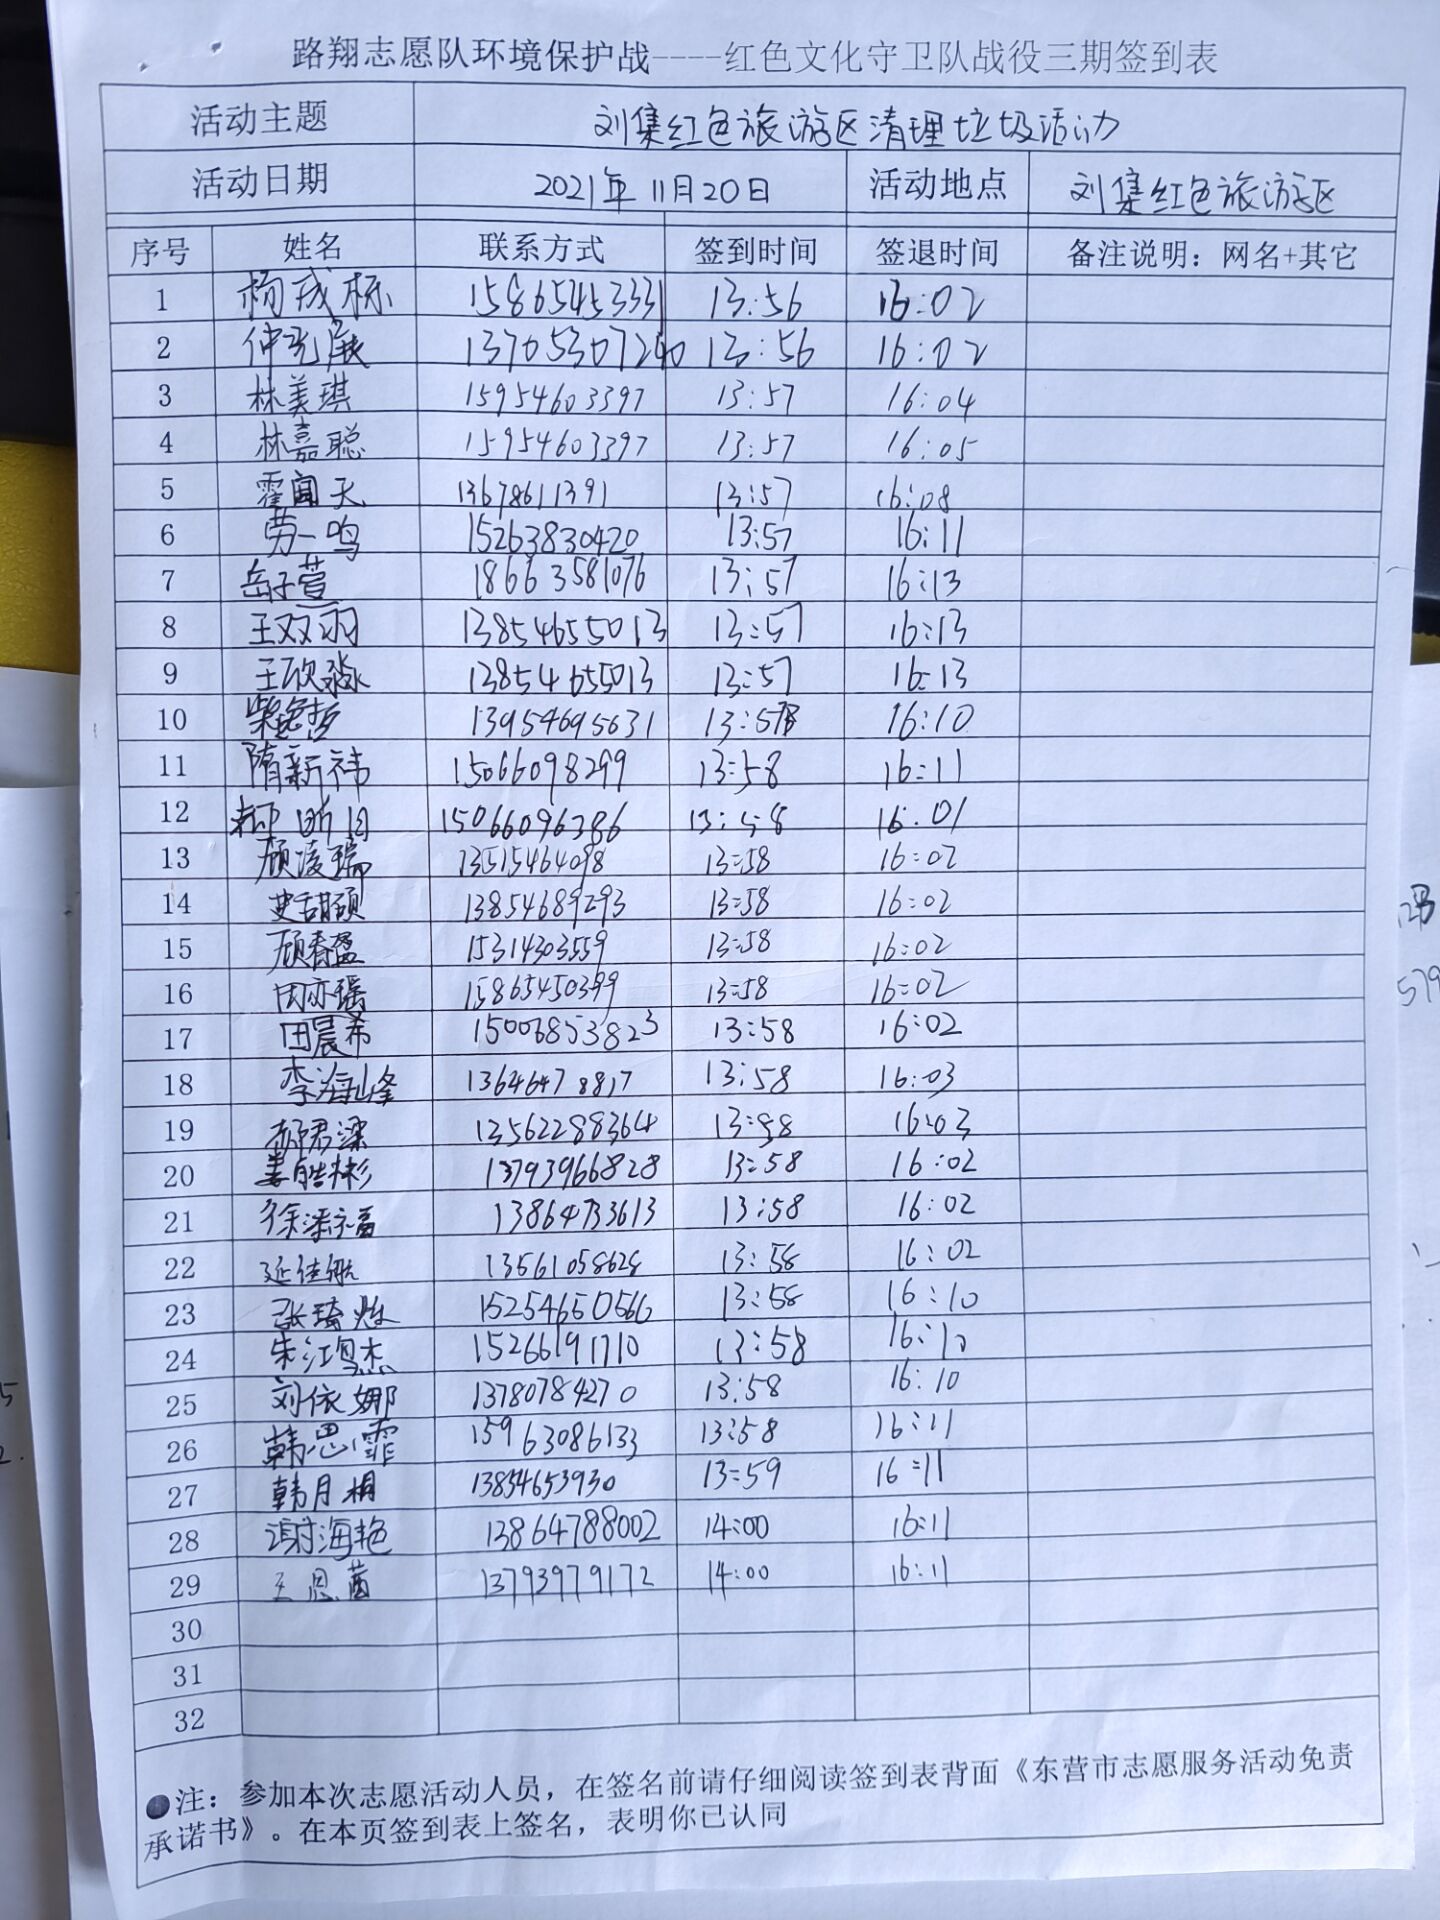 路翔志愿队环境保护战----红色文化守卫队战役三期签到表
活动主题 刘集红色旅游区清理垃圾活动
活动日期 2021年11月20日 活动地点 刘集红色旅游区
序号 姓名 联系方式 签到时间 签退时间 备注说明：网名+其它
1 杨成栋 15865453331 13:56 16:02
2 13705307240 13:56 16:02
3 林美琪 15954603397 13:57 16:04
4 林嘉聪 15954603397 13:57 16:05
5 霍闻天 13678611391 13:57 16:08
6 劳一鸣 15263830420 13:57 16:11
7 岳子萱 18663581076 13:57 16:13
8 王双羽 13854655013 13:57 16:13
9 王欣淼 13854655013 13:57 16:13
10 13954695631 13:58 16:10
11 隋新祎 15066098299 13:58 16:11
12 15066096386 13:58 16:01
13 顾凌瑞 13515464098 13:58 16:02
14 史甜颐 13854689293 13:58 16:02
15 顾春盈 15314303559 13:58 16:02
16 田亦瑶 15865450399 13:58 16:02
17 田晨希 15006853823 13:58 16:02
18 李海峰 13646478817 13:58 16:03
19 郝君梁 13562288364 13:58 16:03
20 姜皓彬 13793966828 13:58 16:02
21 徐梁福 13864733613 13:58 16:02
22 延佳航 13561058628 13:58 16:02
23 张琦 15254650566 13:58 16:10
24 朱江鸿杰 15266191710 13:58 16:10
25 刘依娜 13780784270 13:58 16:10
26 韩思霏 15963086133 13:58 16:11
27 韩月桐 13854653930 13:59 16:11
28 谢海艳 13864788002 14:00 16:11
29 王恩茵 13793979172 14:00 16:11
30
31
32
●注：参加本次志愿活动人员，在签名前请仔细阅读签到表背面《东营市志愿服务活动免责
承诺书》。在本页签到表上签名，表明你已认同